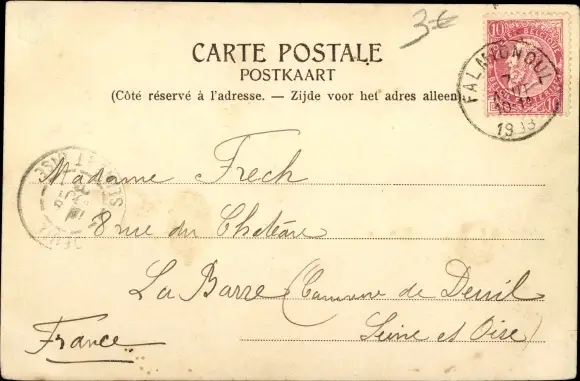 3-€
CARTE POSTALE
POSTKAART
(Côté réservé à l'adresse. — Zijde voor het adres alleen)
10 10
BELGIQUE
FALMIGNOUL
1903
Madame Frech
8 rue du Château
La Barre (Commune de Deuil
Seine et Oise)
France